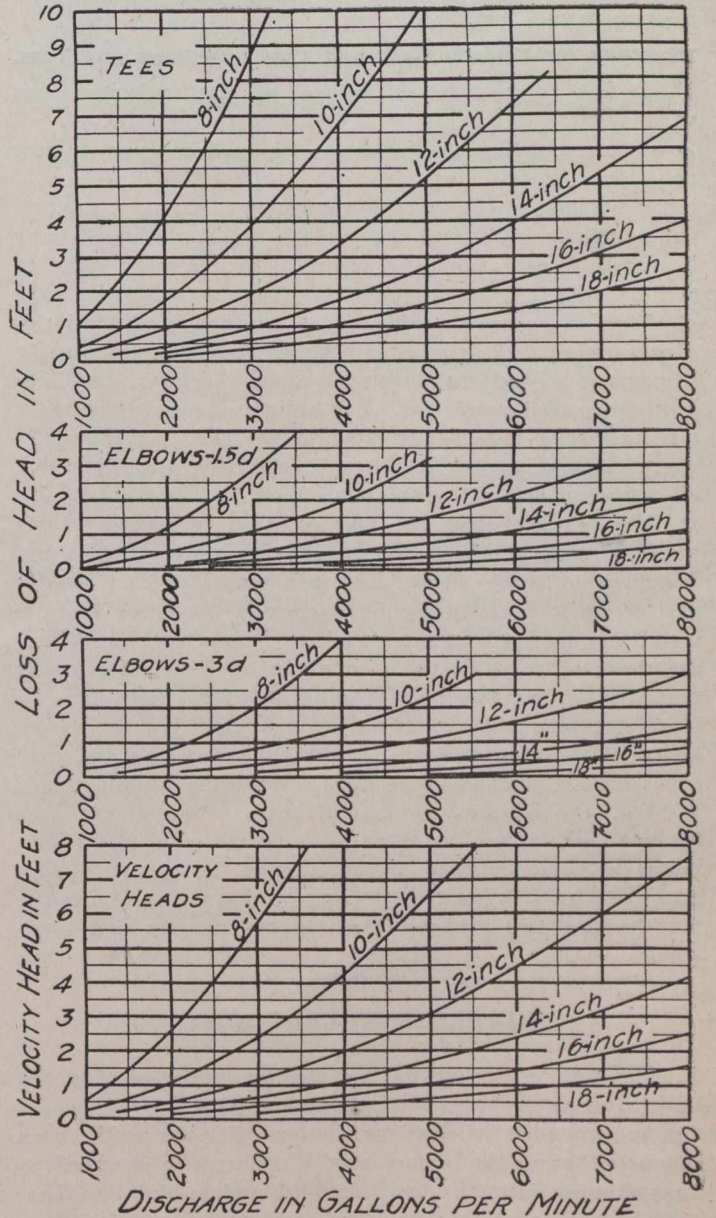 LOSS OF HEAD IN FEET
10
9
8
7
6
5
4
3
2
1
0
TEES
8-inch
10-inch
12-inch
14-inch
16-inch
18-inch
1000
2000
3000
4000
5000
6000
7000
8000
4
3
2
1
0
ELBOWS-1.5d
8-inch
10-inch
12-inch
14-inch
16-inch
18-inch
1000
2000
3000
4000
5000
6000
7000
8000
4
3
2
1
0
ELBOWS-3d
8-inch
10-inch
12-inch
14"
16"
18"
1000
2000
3000
4000
5000
6000
7000
8000
VELOCITY HEAD IN FEET
8
7
6
5
4
3
2
1
0
VELOCITY
HEADS
8-inch
10-inch
12-inch
14-inch
16-inch
18-inch
1000
2000
3000
4000
5000
6000
7000
8000
DISCHARGE IN GALLONS PER MINUTE